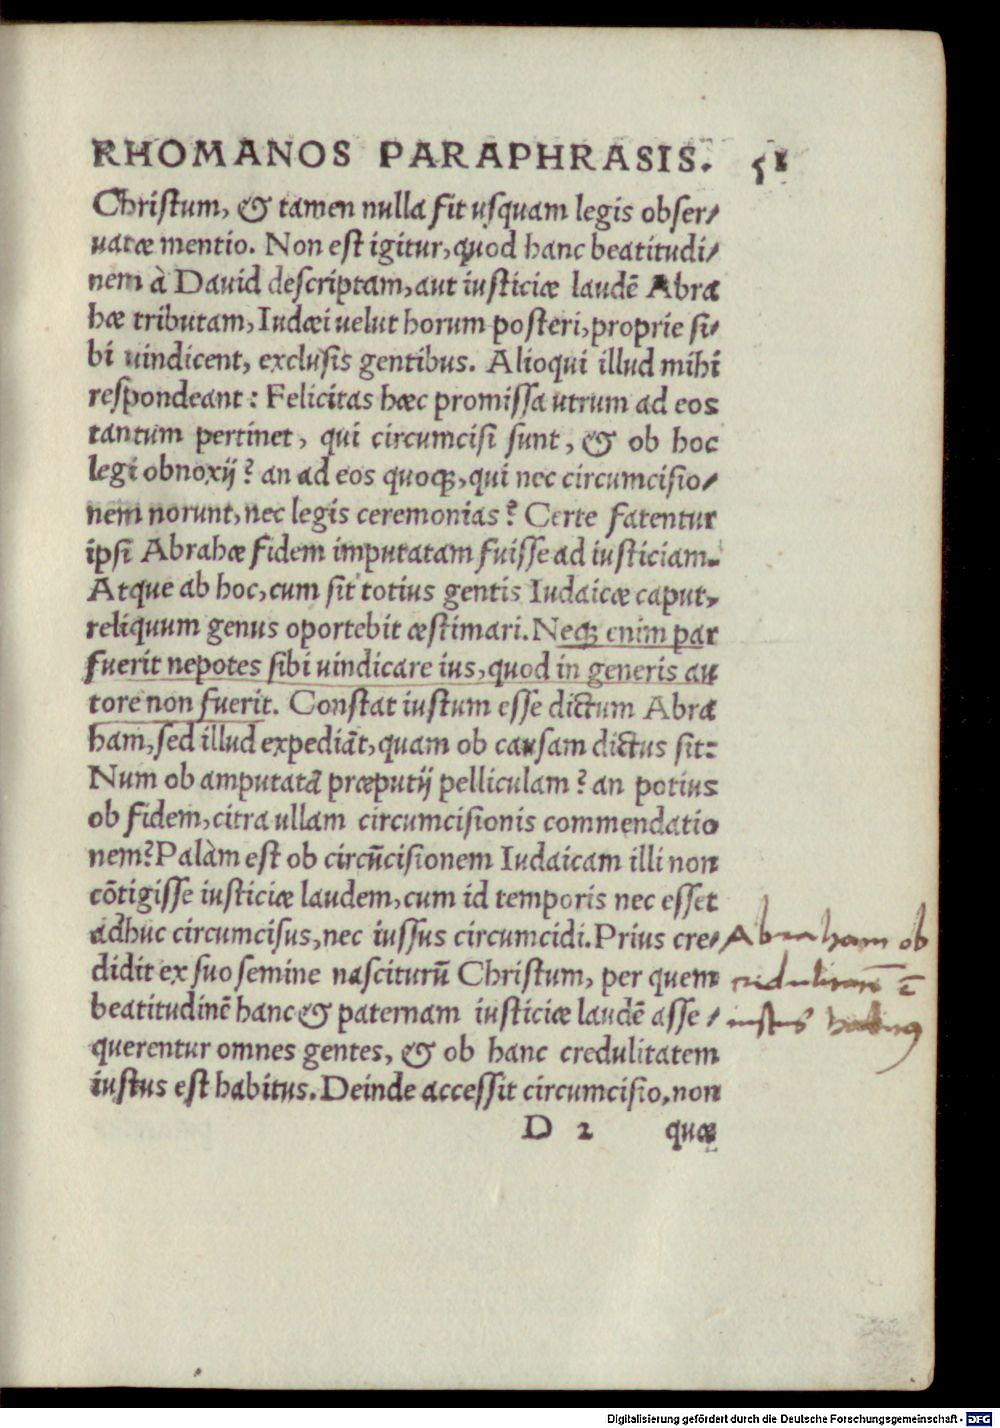 RHOMANOS PARAPHRASIS. 51
Christum, & tamen nulla fit usquam legis obser/
uatæ mentio. Non est igitur, quod hanc beatitudi/
nem à Dauid descriptam, aut iusticiæ laudē Abra
hæ tributam, Iudæi uelut horum posteri, proprie si/
bi uindicent, exclusis gentibus. Alioqui illud mihi
respondeant: Felicitas hæc promissa utrum ad eos
tantum pertinet, qui circumcisi sunt, & ob hoc
legi obnoxij? an ad eos quoqꝫ, qui nec circumcisio/
nem norunt, nec legis ceremonias? Certe fatentur
ipsi Abrahæ fidem imputatam fuisse ad iusticiam.
Atque ab hoc, cum sit totius gentis Iudaicæ caput,
reliquum genus oportebit æstimari. Neqꝫ enim par
fuerit nepotes sibi uindicare ius, quod in generis au
tore non fuerit. Constat iustum esse dictum Abra
ham, sed illud expediāt, quam ob causam dictus sit:
Num ob amputatā præputij pelliculam? an potius
ob fidem, citra ullam circumcisionis commendatio
nem? Palàm est ob circūcisionem Iudaicam illi non
cōtigisse iusticiæ laudem, cum id temporis nec esset
adhuc circumcisus, nec iussus circumcidi. Prius cre/
didit ex suo semine nasciturū Christum, per quem
beatitudinē hanc & paternam iusticiæ laudē asse/
querentur omnes gentes, & ob hanc credulitatem
iustus est habitus. Deinde accessit circumcisio, non
D 2 quæ
Abraham ob
credulitatē ē
iustus habitꝰ
Digitalisierung gefördert durch die Deutsche Forschungsgemeinschaft - DFG